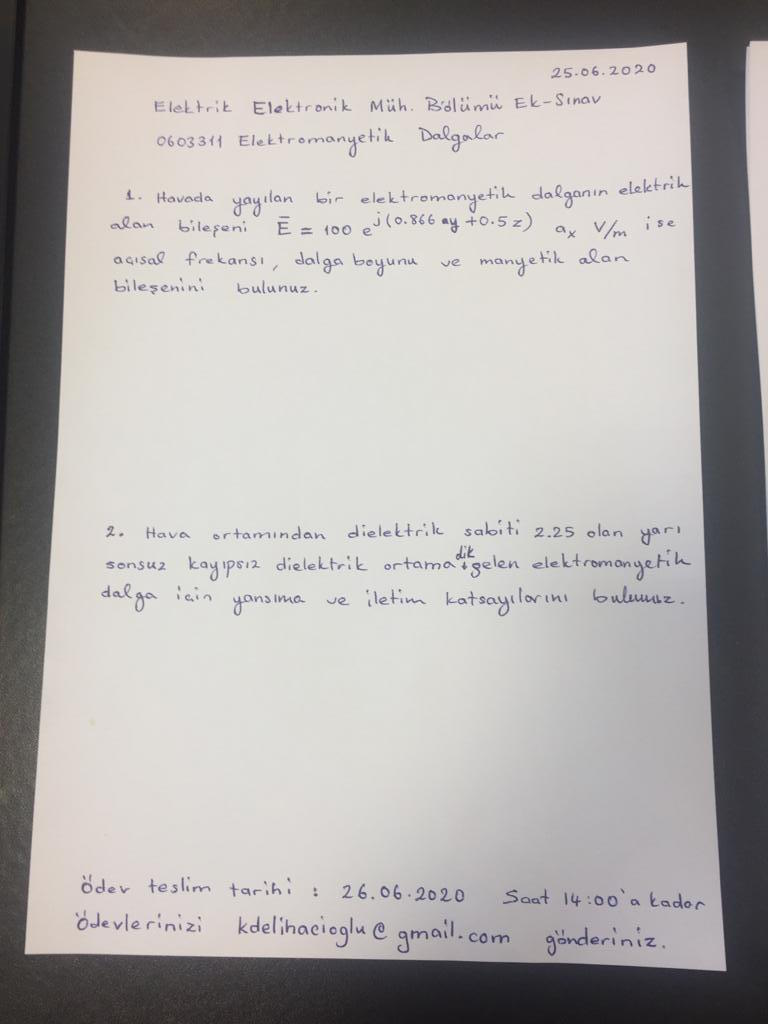 25.06.2020
Elektrik Elektronik Müh. Bölümü Ek-Sınav
0603311 Elektromanyetik Dalgalar
1. Havada yayılan bir elektromanyetik dalganın elektrik
alan bileşeni Ē = 100 e^j(0.866 ay + 0.5 z) a_x V/m ise
açısal frekansı, dalga boyunu ve manyetik alan
bileşenini bulunuz.
2. Hava ortamından dielektrik sabiti 2.25 olan yarı
sonsuz kayıpsız dielektrik ortama dik gelen elektromanyetik
dalga için yansıma ve iletim katsayılarını bulunuz.
Ödev teslim tarihi : 26.06.2020 Saat 14:00'a kadar
Ödevlerinizi kdelihacioglu@gmail.com gönderiniz.